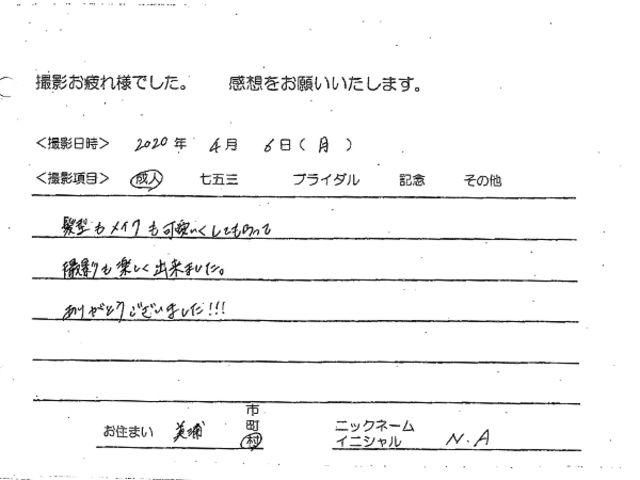 撮影お疲れ様でした。 感想をお願いいたします。
<撮影日時> 2020年 4月 6日(月)
<撮影項目> 成人 七五三 ブライダル 記念 その他
髪型もメイクも可愛いくしてもらって
撮影も楽しく出来ました。
ありがとうございました!!!
お住まい 美浦 市 町 村
ニックネーム
イニシャル N.A